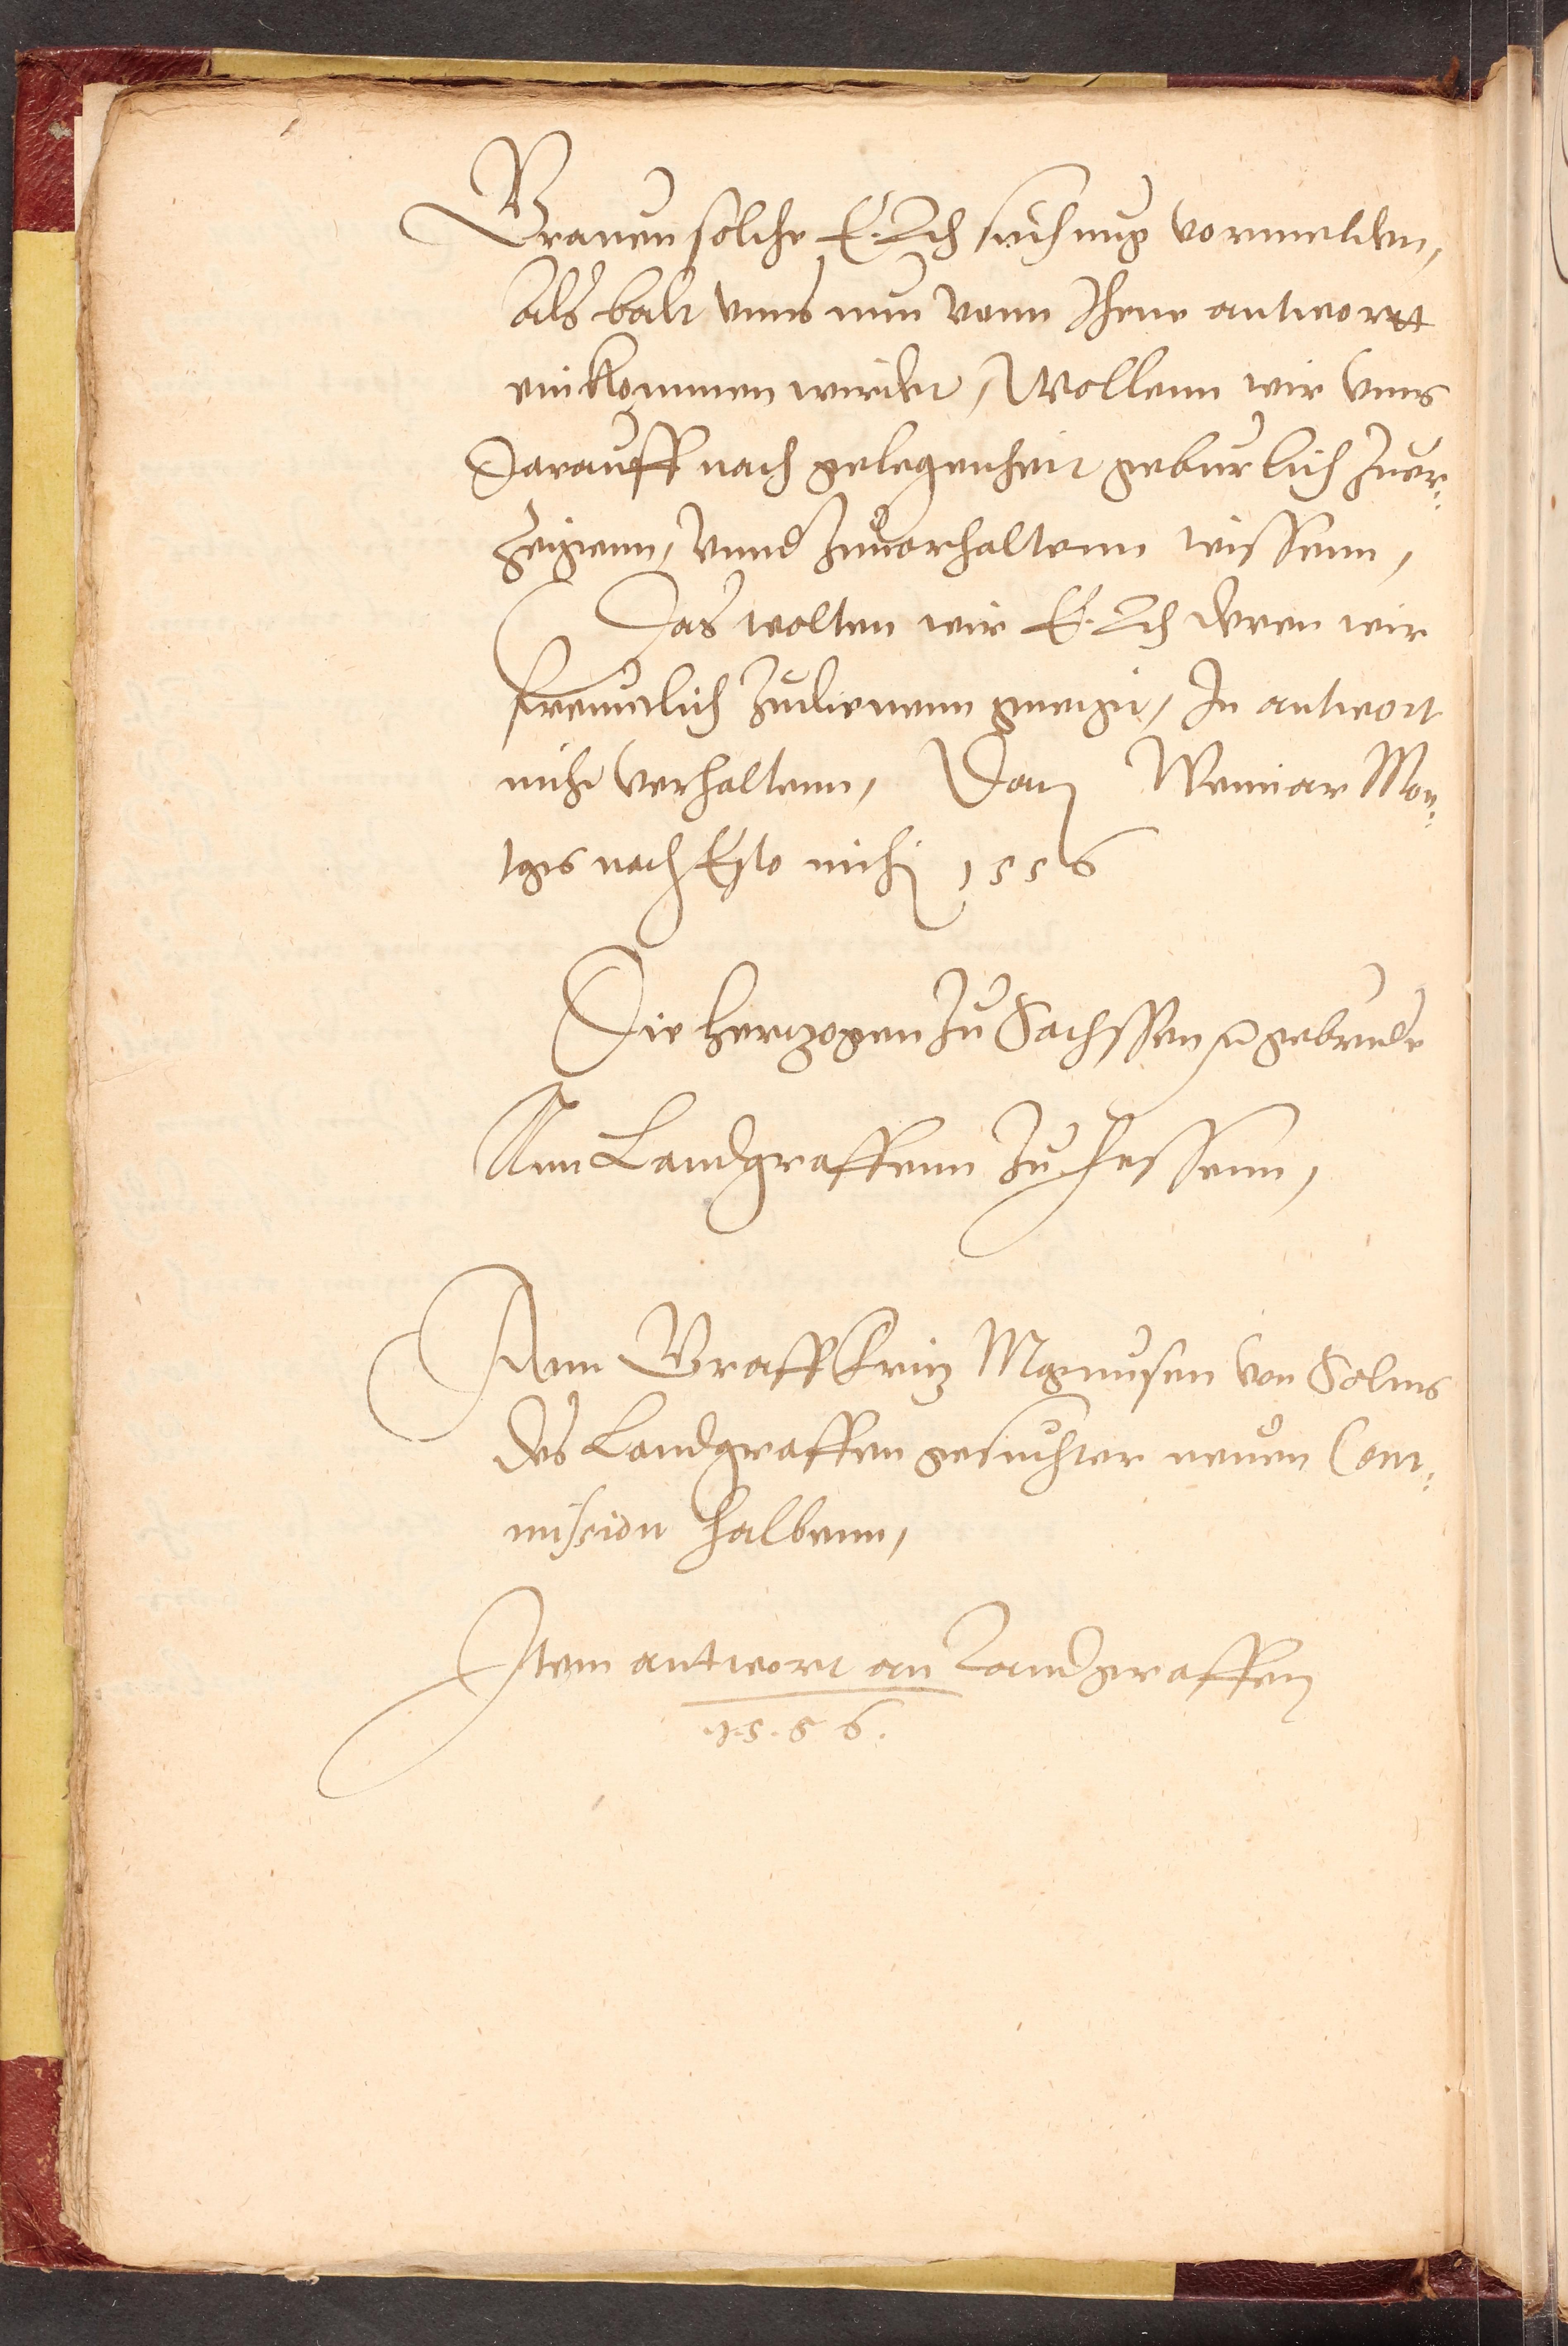 Grauen solche E. Ld suchung vormelden,
Als balt vnns nun vonn Ihme antwortt
einkkommen wirdet, Wollenn wir vnns
Darauff nach gelegenheit geburlich zuer¬
zeigenn, vnnd zuuorhaltenn wissenn,
Das wolten wir E. Ld deren wir
freuntlich zudienenn geneigt, In antwort
nicht verhaltenn, Dat Weimar Mon¬
tgs nach Esto michi 1556
Die Hertzogen zu Sachssen gebrude
Ann Landgraffenn zu Hessenn,
Ann Graff Fritz Magnusen von Solms
des Landgraffen gesuchter neuen Com¬
mission halbenn,
Item antwort an Landgraffen
.1.5.5 6.